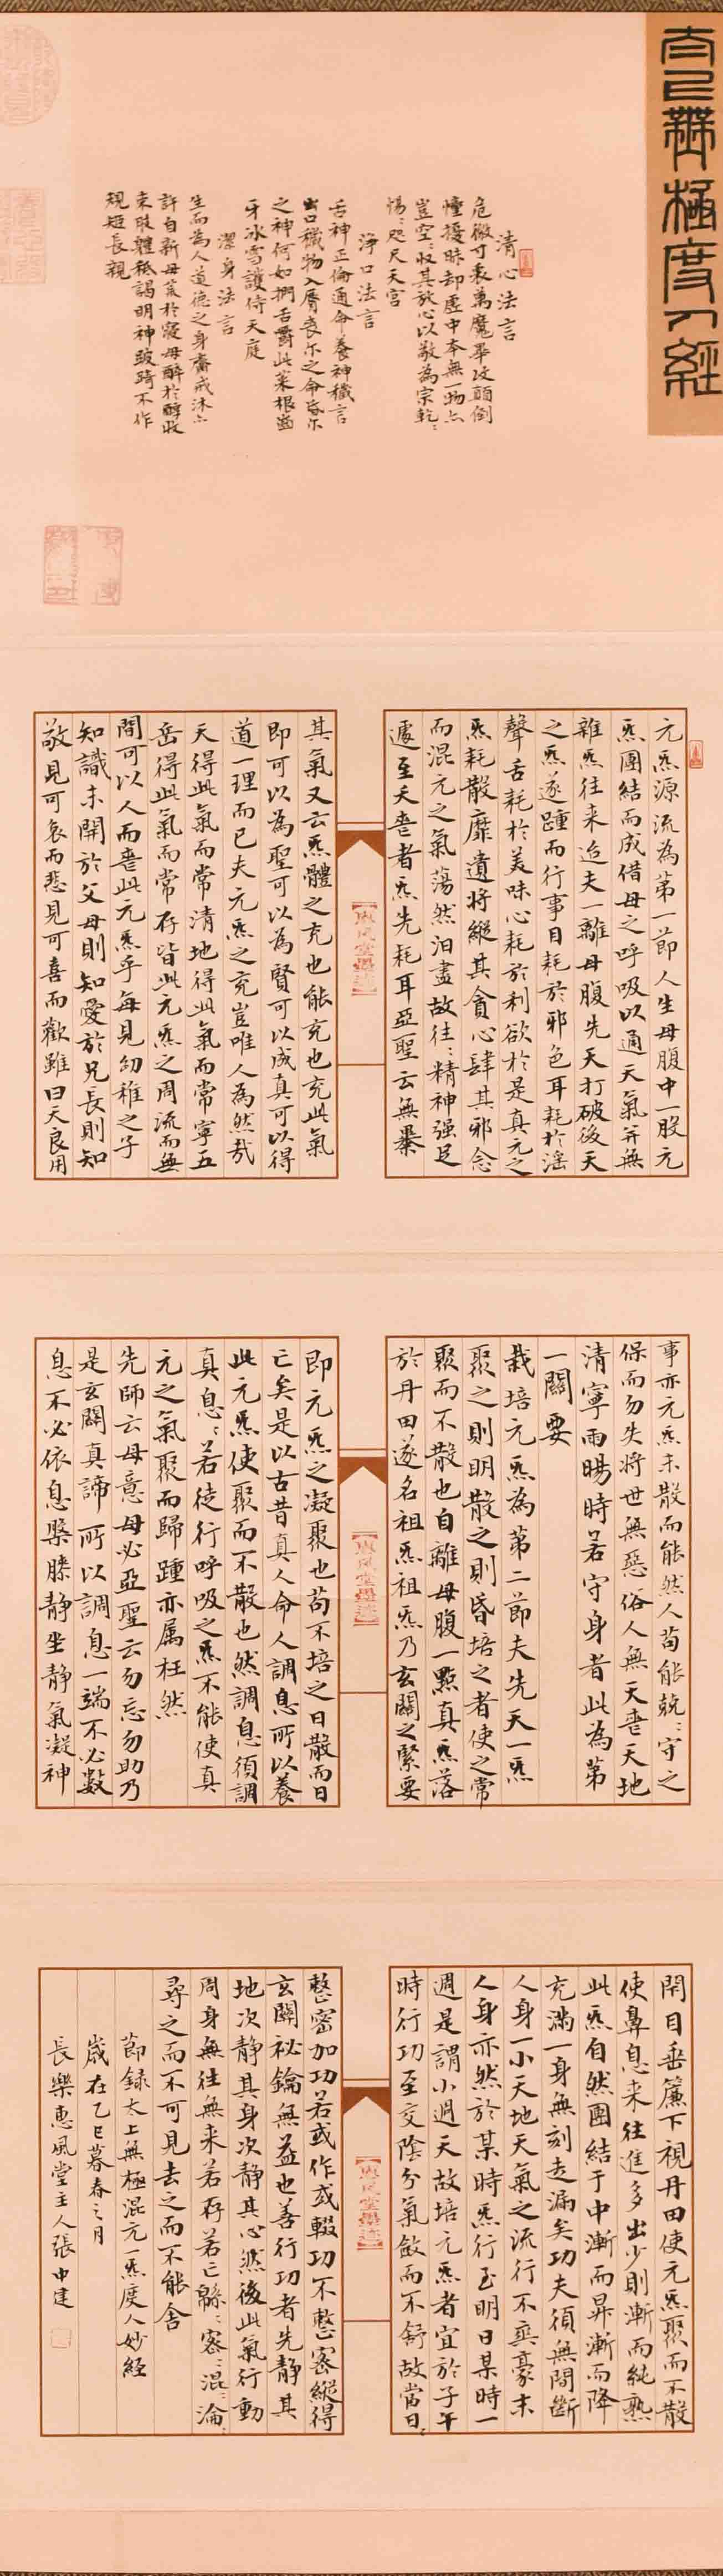 太上無極度人經
清心法言
危微可表萬魔畢攻顛倒
憧擾昧却虛中本無一物亦
豈空收其放心以敬為宗乾〻
惕〻咫尺天宮
淨口法言
舌神正倫通命養神穢言
出口穢物入脣喪尔之命昏尔
之神何如捫舌爵此菜根齒
牙冰雪護侍天庭
潔身法言
生而為人道德之身齋戒沐亦
許自新毋葷於寢毋醉於醇收
束肢體秖謁明神跛踦不作
規矩長親
元炁源流為第一節人生母腹中一股元
炁團結而成借母之呼吸以通天氣并無
雜炁往来迨夫一離母腹先天打破後天
之炁遂踵而行事目耗於邪色耳耗於滛
聲舌耗於美味心耗於利欲於是真元之
炁耗散靡遺將縱其貪心肆其邪念
而混元之氣蕩然泊盡故往〻精神强足
遽至夭喪者炁先耗耳亞聖云無暴
其氣又云炁體之充也能充也充此氣
即可以為聖可以為賢可以成真可以得
道一理而已夫元炁之充豈唯人為然哉
天得此氣而常清地得此氣而常寧五
岳得此氣而常存皆此元炁之周流而無
間可以人而喪此元炁乎每見幼稚之子
知識未開於父母則知愛於兄長則知
敬見可哀而悲見可喜而歡雖曰天良用
惠風堂墨迹
事亦元炁未散而能然人苟能兢〻守之
保而勿失將世無惡俗人無夭喪天地
清寧雨暘時若守身者此為第
一關要
栽培元炁為第二節夫先天一炁
聚之則明散之則昏培之者使之常
聚而不散也自離母腹一點真炁落
於丹田遂名祖炁祖炁乃玄關之緊要
即元炁之凝聚也苟不培之日散而日
亡矣是以古昔真人命人調息所以養
此元炁使聚而不散也然調息須調
真息〻若徒行呼吸之炁不能使真
元之氣聚而歸踵亦属枉然
先師云毋意毋必亞聖云勿忘勿助乃
是玄關真諦所以調息一端不必數
息不必依息槃膝静坐静氣凝神
惠風堂墨迹
閉目垂簾下視丹田使元炁聚而不散
使鼻息来往進多出少則漸而純熟
此炁自然團結于中漸而昇漸而降
充滿一身無刻走漏矣功夫須無間斷
人身一小天地天氣之流行不爽豪末
人身亦然於某時炁行至明日某時一
週是謂小週天故培元炁者宜於子午
時行功至交陰分氣斂而不舒故當日〻
整密加功若或作或輟功不整密縱得
玄關祕鑰無益也善行功者先静其
地次静其身次静其心然後此氣行動
周身無往無来若存若亡緜〻密〻混〻淪〻
尋之而不可見去之而不能舍
節録太上無極混元一炁度人妙經
歲在乙巳暮春之月
長樂惠風堂主人張中建
惠風堂墨迹